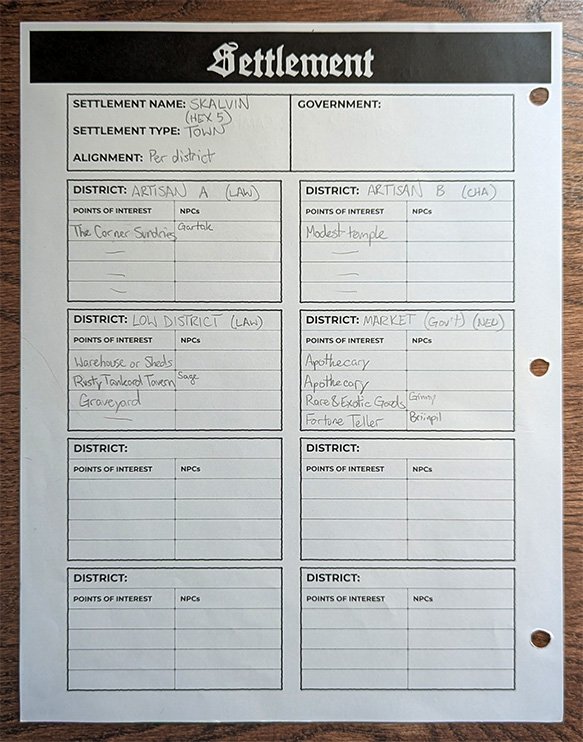 Settlement
SETTLEMENT NAME: SKALVIN
(HEX 5)
SETTLEMENT TYPE: TOWN
ALIGNMENT: Per district
GOVERNMENT:
DISTRICT: ARTISAN A (LAW)
POINTS OF INTEREST NPCs
The Corner Sundries Gartok
—
—
—
DISTRICT: ARTISAN B (CHA)
POINTS OF INTEREST NPCs
Modest temple
—
—
—
DISTRICT: LOW DISTRICT (LAW)
POINTS OF INTEREST NPCs
Warehouse or Sheds
Rusty Tankard Tavern Sage
Graveyard
—
DISTRICT: MARKET (Gov't) (NEU)
POINTS OF INTEREST NPCs
Apothecary
Apothecary
Rare & Exotic Goods
Fortune Teller
DISTRICT:
POINTS OF INTEREST NPCs
DISTRICT:
POINTS OF INTEREST NPCs
DISTRICT:
POINTS OF INTEREST NPCs
DISTRICT:
POINTS OF INTEREST NPCs